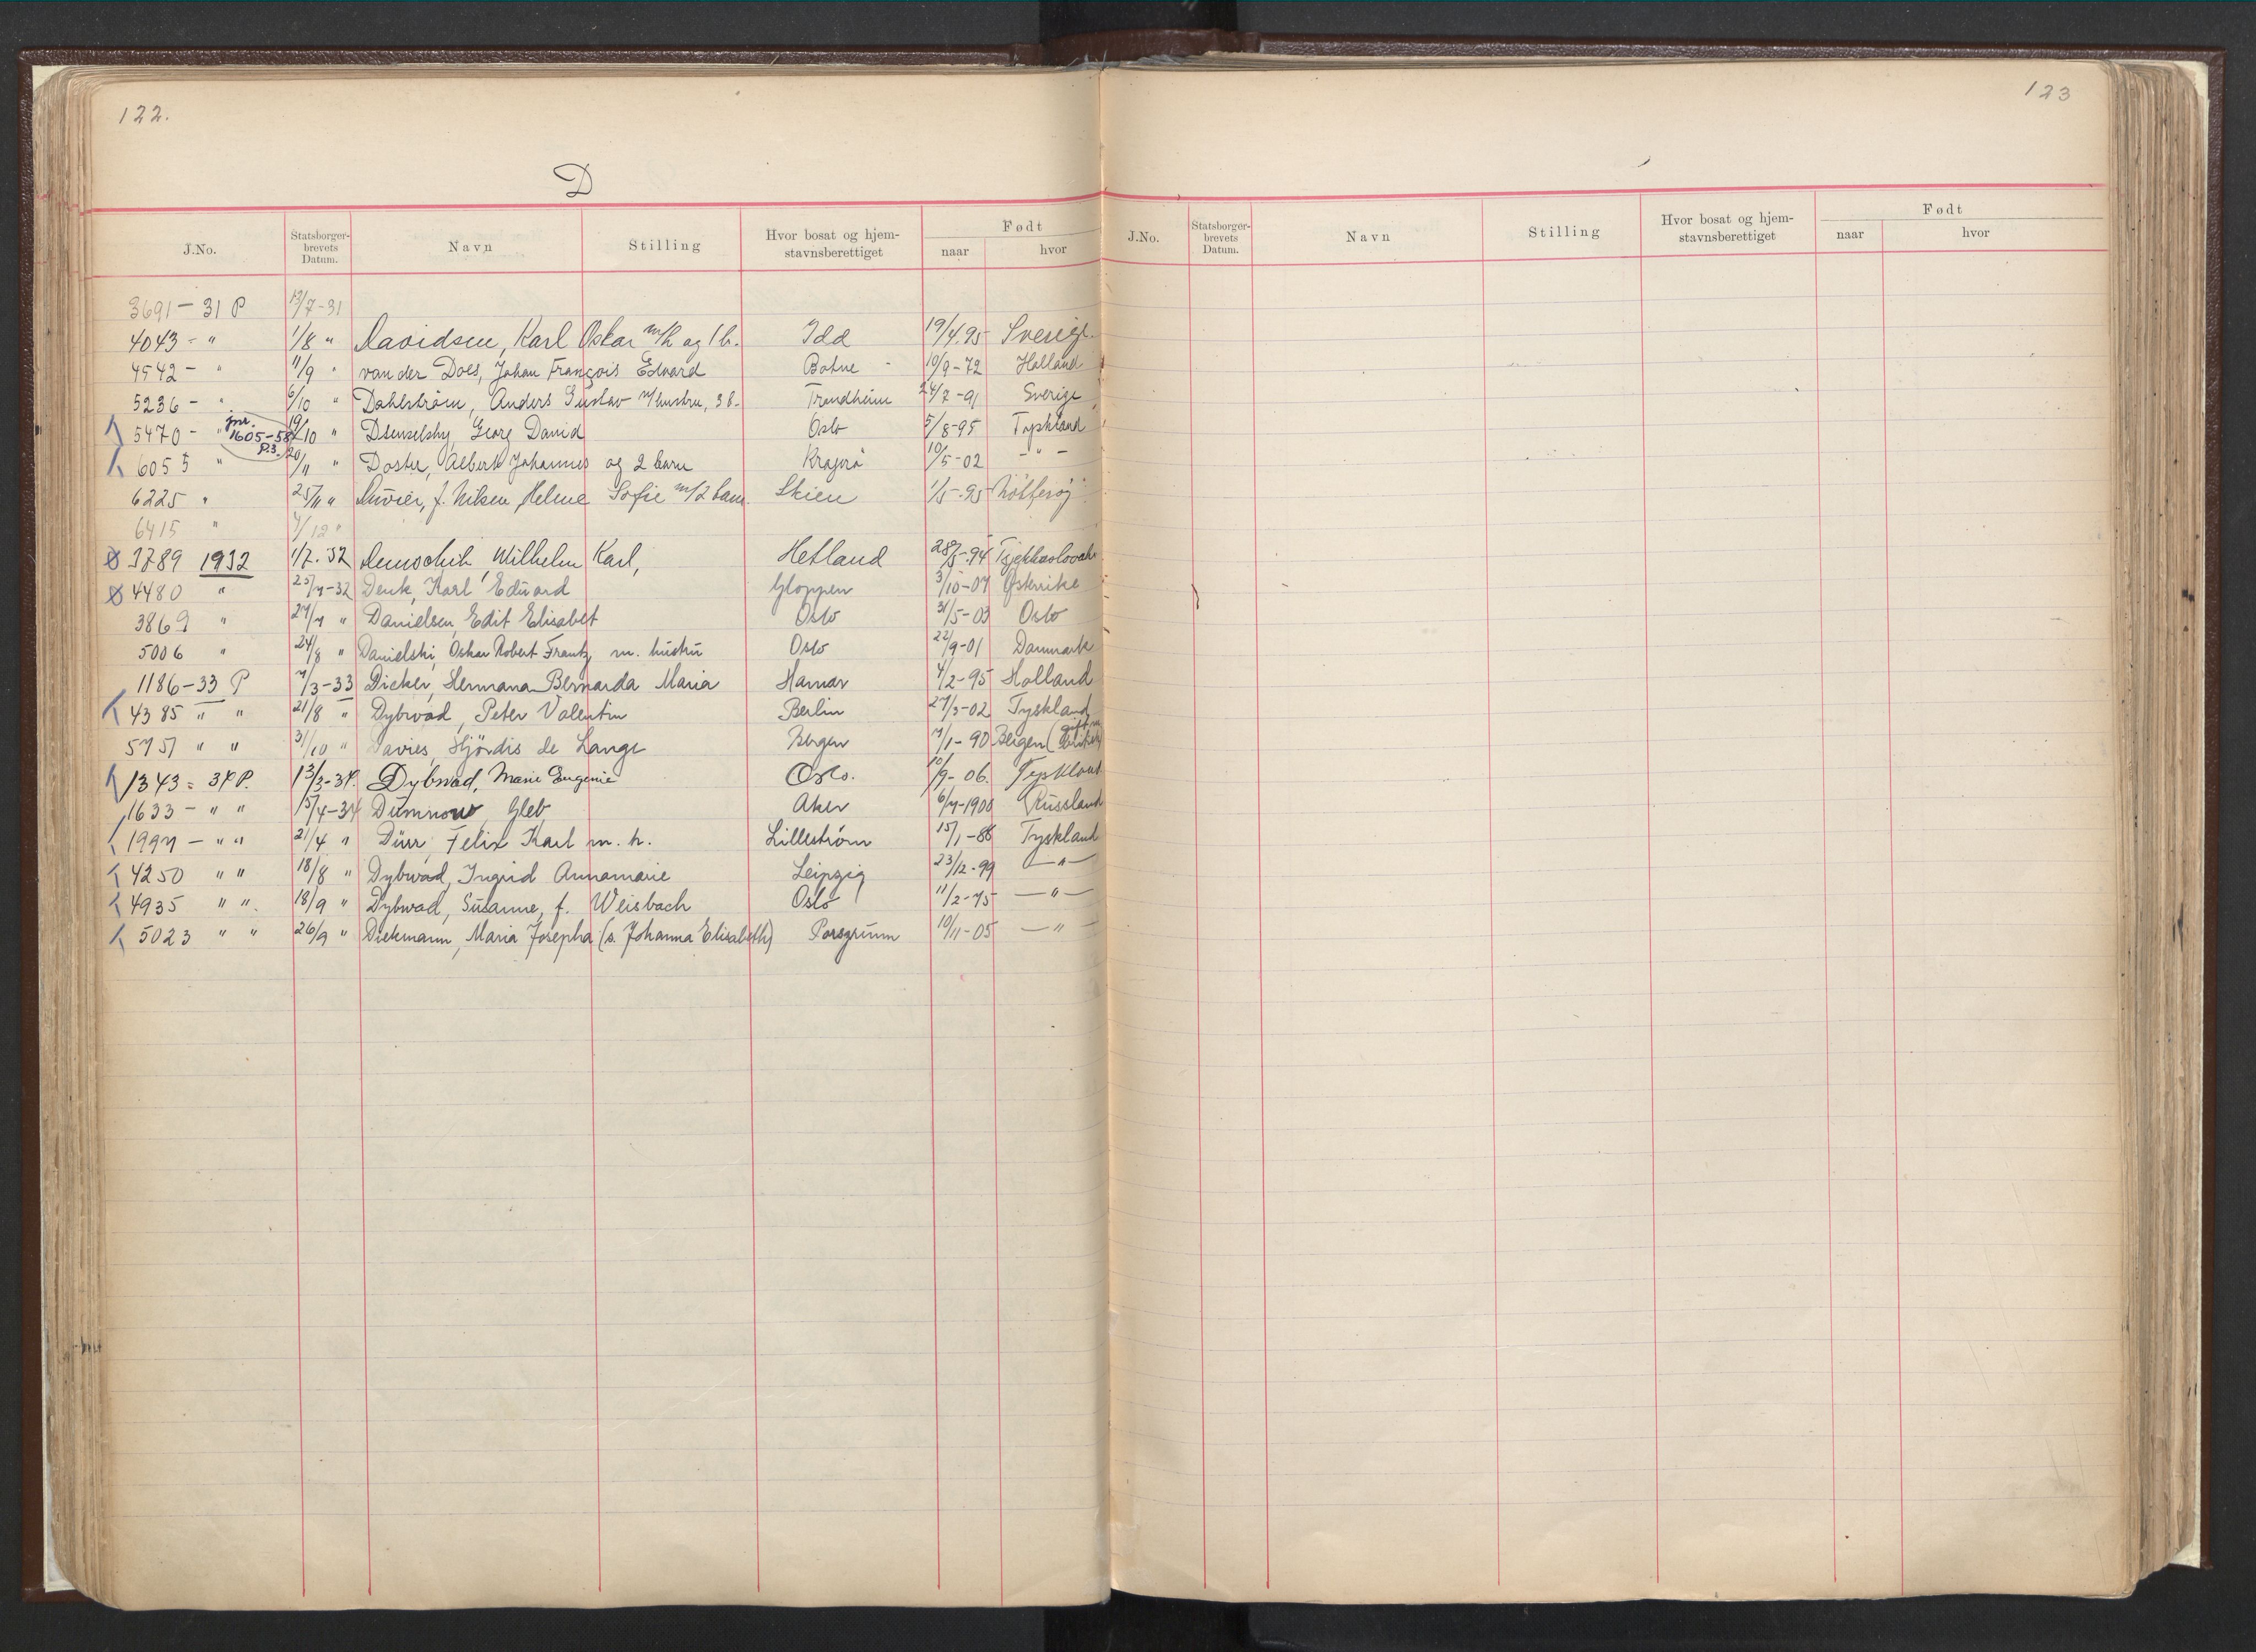 122.
123
D
J.No. Statsborgerbrevets Datum. Navn Stilling Hvor bosat og hjemstavnsberettiget Født naar hvor
J.No. Statsborgerbrevets Datum. Navn Stilling Hvor bosat og hjemstavnsberettiget Født naar hvor
3691 - 31 P 13/7-31
4043 - " 1/8 " Davidsen, Karl Oskar m/h og 1 b. Idd 19/4.95 Sverige
4542 - " 11/9 " van der Does, Johan François Edvard Botne 10/9-72 Holland
5236 - " 6/10 " Dahlström, Anders Gustav m/hustru, 3 b. Trondheim 24/7-91 Sverige
jnr. 1605-58 P.3.
5470 - " 19/10 " Georg David Oslo 5/8-95 Tyskland
6055 " 20/11 " Doster, Albert Johannes og 2 barn Kragerø 10/5-02 - " -
6225 " 25/11 " f. Nilsen, Helene Sofie m/2 barn Skien 1/5-95 Nøtterøy
6415 " /12 "
3789 1932 1/7.32 Wilhelm Karl, Hetland 28/5-94 Tsjekkoslovak
4480 " 25/7-32 Denk, Karl Eduard Gloppen 3/10-07 Østerrike
3869 " 27/7 " Danielsen, Edit Elisabet Oslo 31/5-03 Oslo
5006 " 24/8 " Danielski, Oskar Robert Frantz m. hustru Oslo 22/9-01 Danmark
1186-33 P 7/3-33 Dicker, Hermana Bernarda Maria Hamar 4/2-95 Holland
4385 " " 21/8 " Dybwad, Peter Valentin Berlin 27/3-02 Tyskland
5757 " " 31/10 " Davies, Hjørdis de Lange Bergen 7/1-90 Bergen (gift m.
1343 = 34 P. 13/3-34. Dybwad, Marie Eugenie Oslo. 10/9-06. Tyskland
1633 - " " 5/4-34 Dumnow, Gleb Aker 6/7-1908 Russland
1997 - " " 21/4 " Dürr, Felix Karl m. h. Lillestrøm 15/1-88 Tyskland
4250 " " 18/8 " Dybwad, Ingrid Annamarie Leipzig 23/12-99 - " -
4935 " " 18/9 " Dybwad, Susanne, f. Weisbach Oslo 11/2-75 - " -
5023 " " 26/9 " Diekmann, Maria Josepha (s. Johanna Elisabeth) Porsgrunn 10/11-05 - " -